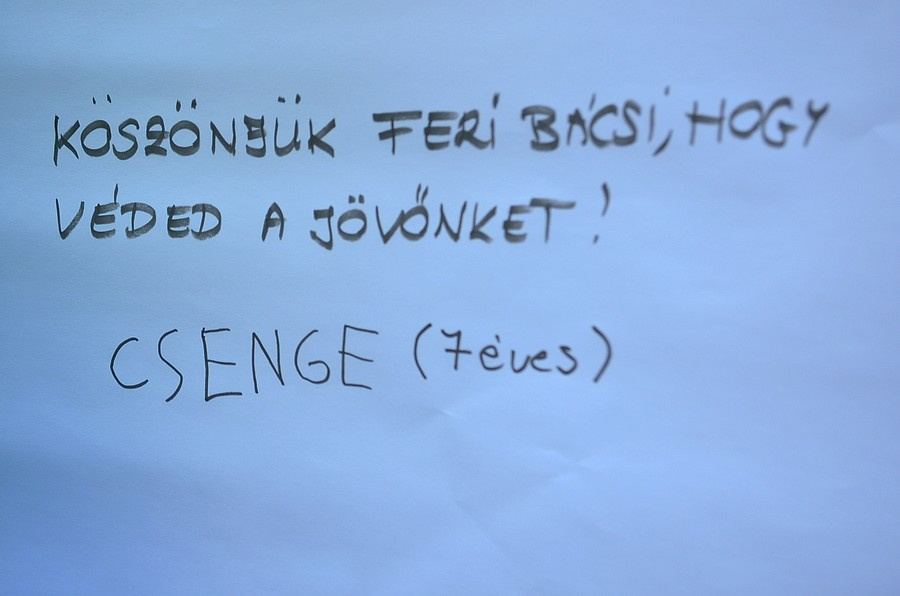 KÖSZÖNJÜK FERI BÁCSI, HOGY
VÉDED A JÖVŐNKET!
CSENGE (7 éves)